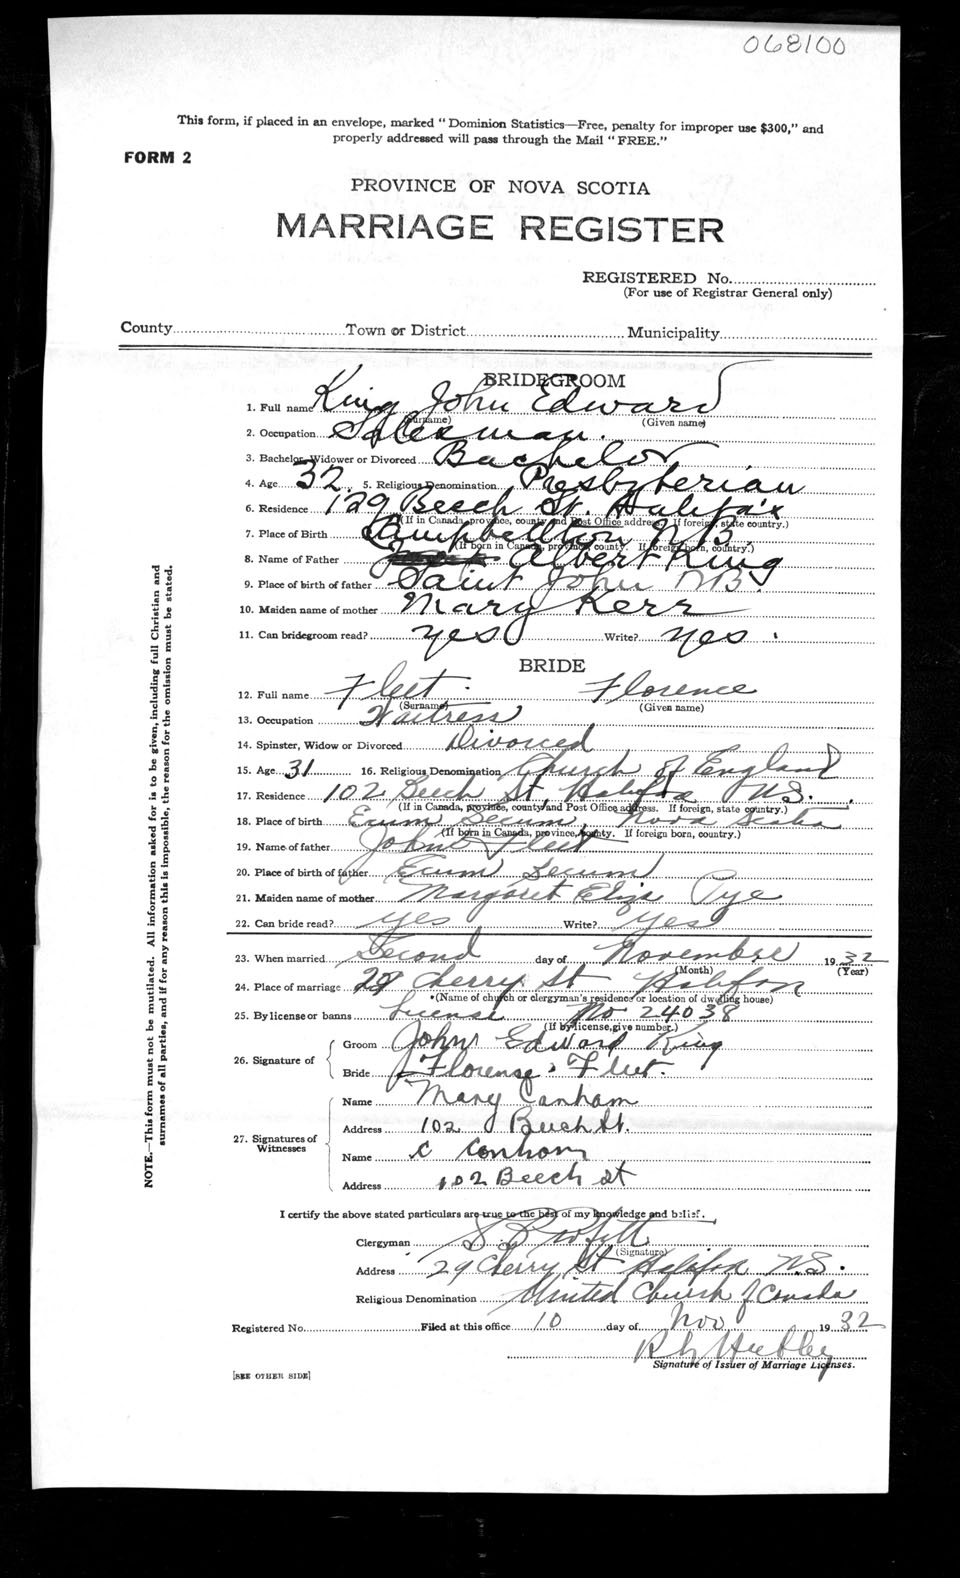 068100
This form, if placed in an envelope, marked "Dominion Statistics—Free, penalty for improper use $300," and
properly addressed will pass through the Mail "FREE."
FORM 2
PROVINCE OF NOVA SCOTIA
MARRIAGE REGISTER
REGISTERED No.
(For use of Registrar General only)
County Town or District Municipality
BRIDEGROOM
1. Full name King John Edward
(Surname) (Given name)
2. Occupation Salesman.
3. Bachelor, Widower or Divorced Bachelor
4. Age 32. 5. Religious Denomination Presbyterian
6. Residence 129 Beech St. Halifax
(If in Canada, province, county and Post Office address. If foreign, state country.)
7. Place of Birth Campbellton N.B.
(If born in Canada, province, county. If foreign born, country.)
8. Name of Father Albert King
9. Place of birth of father Saint John NB.
10. Maiden name of mother Mary Kerr
11. Can bridegroom read? yes Write? yes.
BRIDE
12. Full name Fleet. Florence
(Surname) (Given name)
13. Occupation Waitress
14. Spinster, Widow or Divorced Divorced
15. Age 31 16. Religious Denomination Church of England
17. Residence 102 Beech St, Halifax N.S.
(If in Canada, province, county and Post Office address. If foreign, state country.)
18. Place of birth Ecum Secum, Nova Scotia
(If born in Canada, province, county. If foreign born, country.)
19. Name of father John Fleet
20. Place of birth of father Ecum Secum
21. Maiden name of mother Margaret Eliza Pye
22. Can bride read? yes Write? yes
23. When married Second day of November 1932
(Month) (Year)
24. Place of marriage 29 Cherry St Halifax
(Name of church or clergyman's residence or location of dwelling house)
25. By license or banns License No 24038
(If by license, give number.)
26. Signature of
Groom John Edward King
Bride Florense Fleet.
27. Signatures of Witnesses
Name Mary Canham
Address 102 Beech St.
Name C Canham
Address 102 Beech st
I certify the above stated particulars are true to the best of my knowledge and belief.
Clergyman S B
(Signature)
Address 29 Cherry St Halifax N.S.
Religious Denomination United Church of Canada
Registered No. Filed at this office 10 day of Nov 1932
Hubley
Signature of Issuer of Marriage Licenses.
[SEE OTHER SIDE]
NOTE.—This form must not be mutilated. All information asked for is to be given, including full Christian and
surnames of all parties, and if for any reason this is impossible, the reason for the omission must be stated.